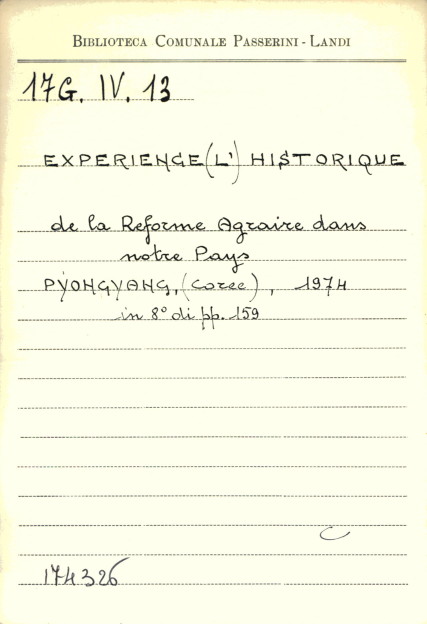 BIBLIOTECA COMUNALE PASSERINI - LANDI
17G. IV. 13
EXPERIENCE (L') HISTORIQUE
de la Reforme Agraire dans
notre Pays
PYONGYANG, (Coree), 1974
in 8° di pp. 159
C
174326